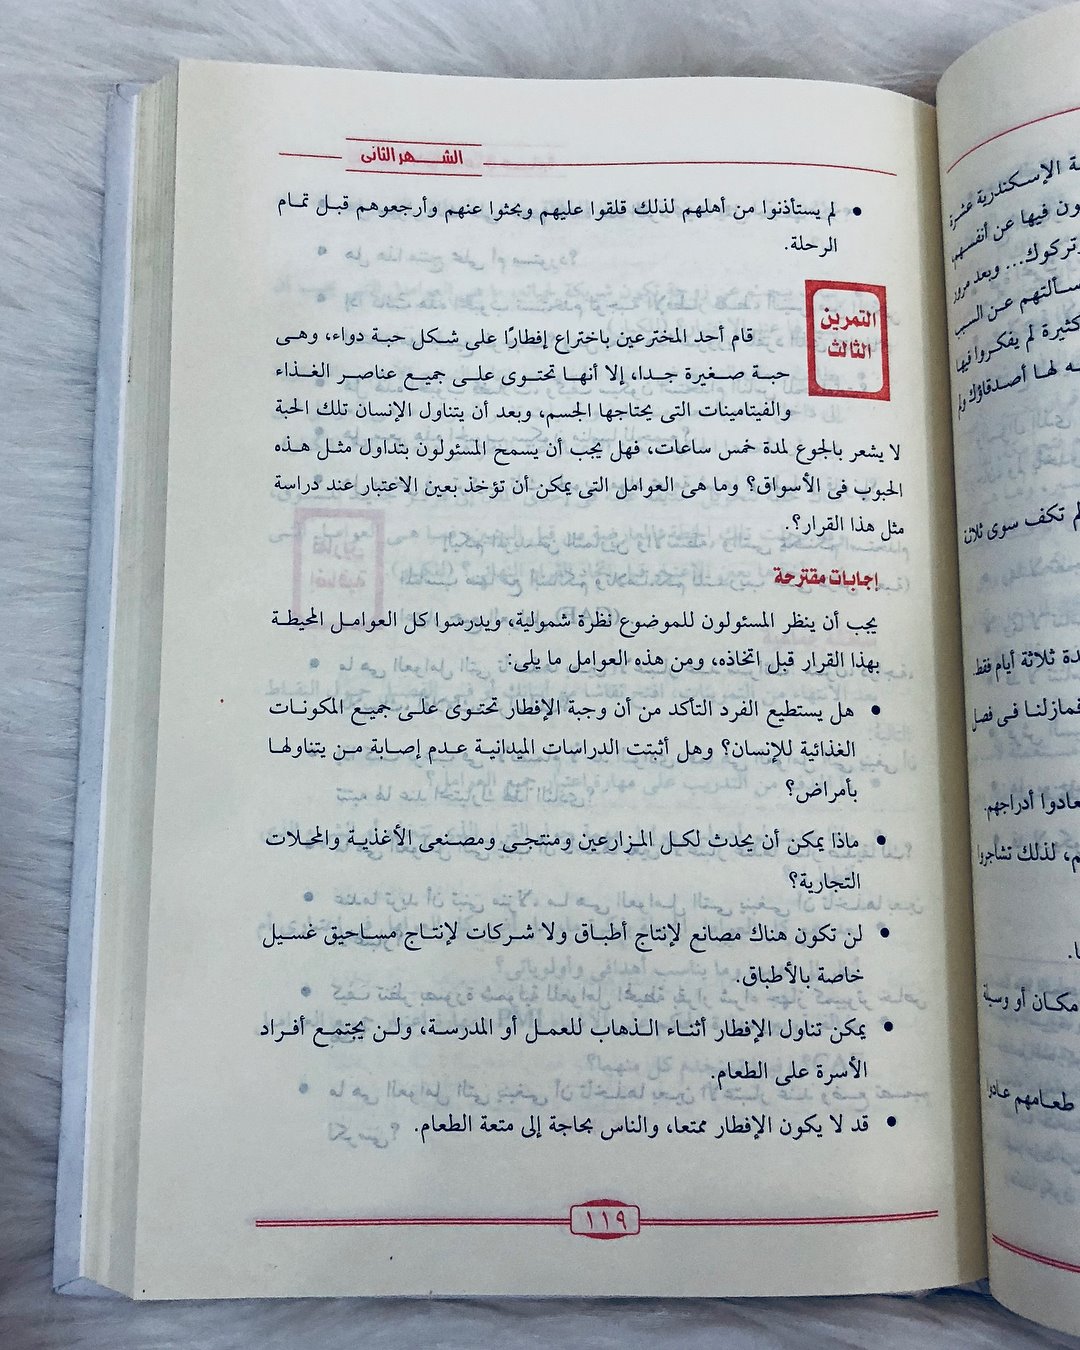 الشهر الثانى
• لم يستأذنوا من أهلهم لذلك قلقوا عليهم وبحثوا عنهم وأرجعوهم قبل تمام
الرحلة.
التمرين
الثالث
قام أحد المخترعين باختراع إفطارًا على شكل حبة دواء، وهى
حبة صغيرة جدا، إلا أنها تحتوى على جميع عناصر الغذاء
والفيتامينات التى يحتاجها الجسم، وبعد أن يتناول الإنسان تلك الحبة
لا يشعر بالجوع لمدة خمس ساعات، فهل يجب أن يسمح المسئولون بتداول مثل هذه
الحبوب فى الأسواق؟ وما هى العوامل التى يمكن أن تؤخذ بعين الاعتبار عند دراسة
مثل هذا القرار؟.
إجابات مقترحة
يجب أن ينظر المسئولون للموضوع نظرة شمولية، ويدرسوا كل العوامل المحيطة
بهذا القرار قبل اتخاذه، ومن هذه العوامل ما يلى:
• هل يستطيع الفرد التأكد من أن وجبة الإفطار تحتوى على جميع المكونات
الغذائية للإنسان؟ وهل أثبتت الدراسات الميدانية عدم إصابة من يتناولها
بأمراض؟
• ماذا يمكن أن يحدث لكل المزارعين ومنتجى ومصنعى الأغذية والمحلات
التجارية؟
• لن تكون هناك مصانع لإنتاج أطباق ولا شركات لإنتاج مساحيق غسيل
خاصة بالأطباق.
• يمكن تناول الإفطار أثناء الذهاب للعمل أو المدرسة، ولن يجتمع أفراد
الأسرة على الطعام.
• قد لا يكون الإفطار ممتعا، والناس بحاجة إلى متعة الطعام.
١١٩
الإسكندرية عشرة
فيها عن أنفسهم
وبعد مرور
سألتهم عن السبب
كثيرة لم يفكروا فيها
له لها أصدقاؤك ولم
لم تكف سوى ثلاثة
ثلاثة أيام فقط.
فمازلنا فى فصل
أدراجهم.
لذلك تشاجروا
مكان أو وسيلة
طعامهم عادوا